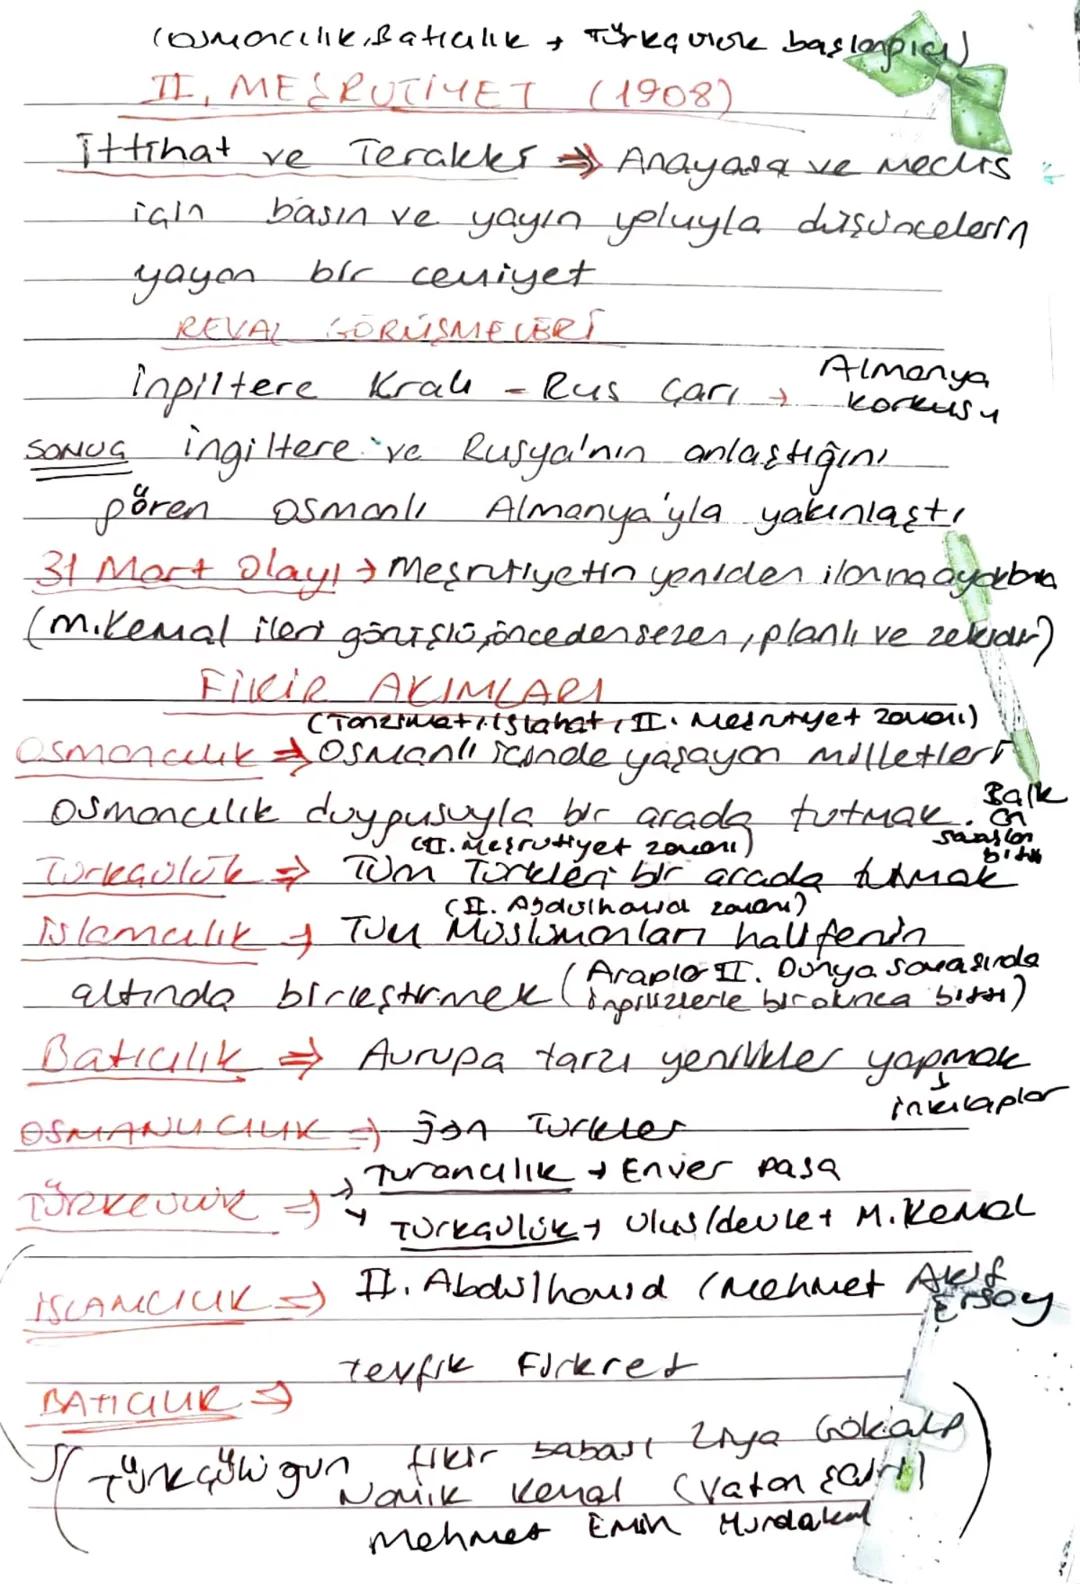 (Osmancılık, Batıcılık → Türkçülük başlangıcı)
II. MEŞRUTİYET (1908)
İttihat ve Terakki ⇒ Anayasa ve Meclis
için basın ve yayın yoluyla düşüncelerin
yayan bir cemiyet
REVAL GÖRÜŞMELERİ
İngiltere Kralı - Rus Çarı → Almanya
korkusu
SONUÇ İngiltere ve Rusya'nın anlaştığını
gören Osmanlı Almanya'yla yakınlaştı
31 Mart Olayı → Meşrutiyetin yeniden ilanına
(M.Kemal ileri görüşlü, önceden sezen, planlı ve zekidir)
FİKİR AKIMLARI
(Tanzimat, Islahat, II. Meşrutiyet zamanı)
Osmancılık ⇒ Osmanlı içinde yaşayan milletleri
Osmancılık duygusuyla bir arada tutmak. Balk
an
bitti
(II. Meşrutiyet zamanı)
Türkçülük ⇒ Tüm Türkleri bir arada tutmak
(II. Abdülhamid zamanı)
İslamcılık → Tüm Müslümanları halifenin
altında birleştirmek (Araplar II. Dünya Savaşında
İngilizlerle bitti)
Batıcılık ⇒ Avrupa tarzı yenilikler yapmak
↓
inkılaplar
OSMANLICILIK ⇒ Jön Türkler
TÜRKÇÜLÜK ⇒ → Turancılık → Enver Paşa
→ Türkçülük → Ulus/devlet M.Kemal
İSLAMCILIK ⇒ II. Abdülhamid (Mehmet Akif
Ersoy
Tevfik Fikret
BATICILIK ⇒
(Türkçülüğün fikir babası Ziya Gökalp
Namık Kemal (Vatan şairi)
Mehmet Emin